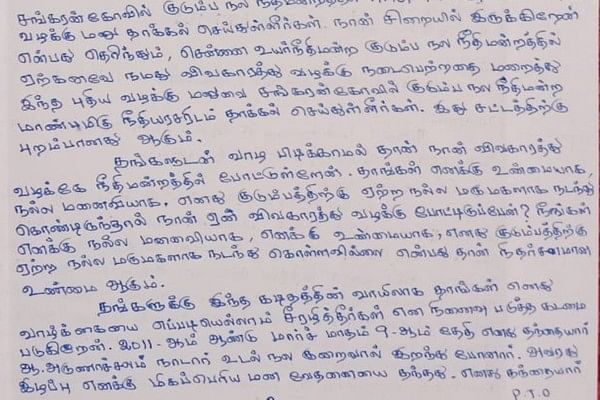 சங்கரன்கோவில் குடும்ப நல நீதிமன்றத்தில்
வழக்கு மனு தாக்கல் செய்துள்ளீர்கள். நான் சிறையில் இருக்கிறேன்
என்பது தெரிந்தும், சென்னை உயர்நீதிமன்ற குடும்ப நல நீதிமன்றத்தில்
ஏற்கனவே நமது விவகாரத்து வழக்கு நடைபெற்றதை மறைத்து
இந்த புதிய வழக்கு மனுவை சங்கரன்கோவில் குடும்ப நல நீதிமன்ற
மாண்புமிகு நீதியரசரிடம் தாக்கல் செய்துள்ளீர்கள். இது சட்டத்திற்கு
புறம்பானது ஆகும்.
தங்களுடன் வாழ பிடிக்காமல் தான் நான் விவகாரத்து
வழக்கே நீதிமன்றத்தில் போட்டுள்ளேன். தாங்கள் எனக்கு உண்மையாக,
நல்ல மனைவியாக, எனது குடும்பத்திற்கு ஏற்ற நல்ல மருமகளாக நடந்து
கொண்டிருந்தால் நான் ஏன் விவகாரத்து வழக்கு போட்டிருப்பேன்? நீங்கள்
எனக்கு நல்ல மனைவியாக, எனக்கு உண்மையாக, எனது குடும்பத்திற்கு
ஏற்ற நல்ல மருமகளாக நடந்து கொள்ளவில்லை என்பது தான் நிதர்சனமான
உண்மை ஆகும்.
தங்களுக்கு இந்த கடிதத்தின் வாயிலாக தாங்கள் எனது
வாழ்க்கையை எப்படியெல்லாம் சீரழித்தீர்கள் என நினைவு படுத்த கடமை
படுகிறேன். 2011-ஆம் ஆண்டு மார்ச் மாதம் 9-ஆம் தேதி எனது தந்தையார்
ஆ.அருணாச்சலம் நாடார் உடல் நல குறைவால் இறந்து போனார். அவரது
இழப்பு எனக்கு மிகப்பெரிய மன வேதனையை தந்தது. எனது தந்தையார்
P.T.O